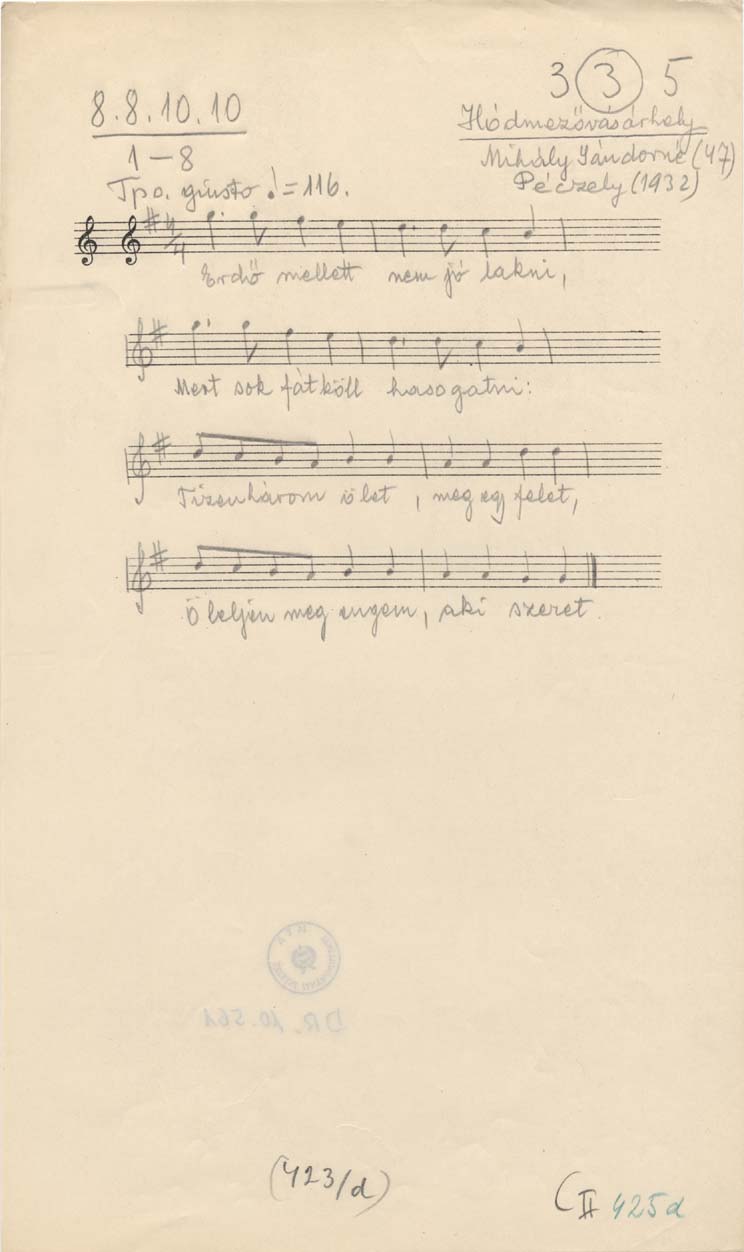 3 (3) 5
8.8.10.10
Hódmezővásárhely
1-8
Mihály Sándorné (47)
Tpo. giusto ♩=116.
Péczely (1932)
4/4
Erdő mellett nem jó lakni,
Mert sok fát köll hasogatni:
Tizenhárom ölet, meg egy felet,
Öleljën meg engem, aki szeret.
DR. 10.561
(423/d)
(II 425d